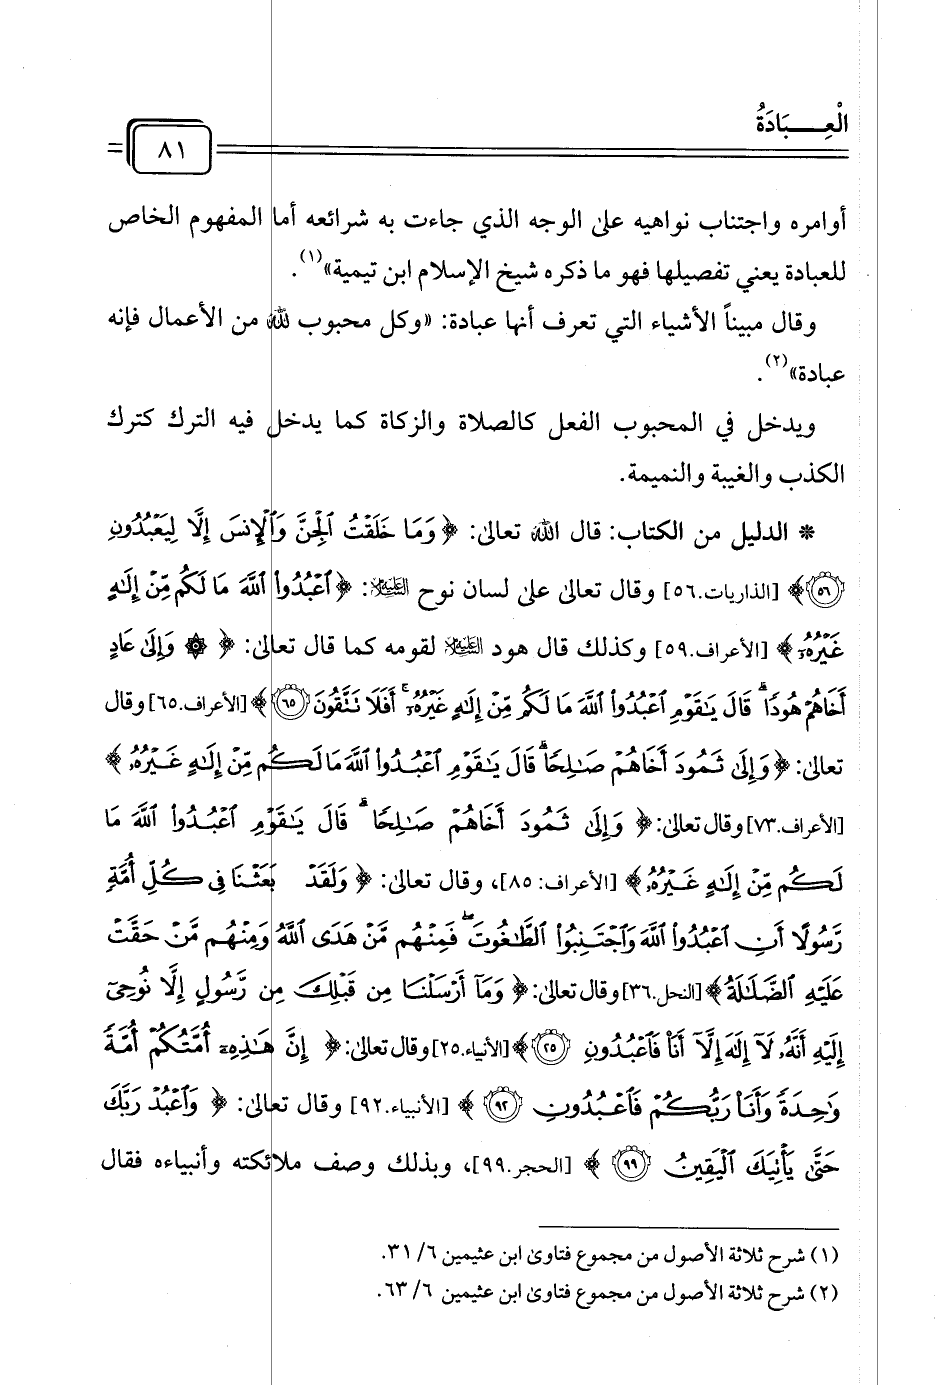 الْعِبَادَةُ
٨١
أوامره واجتناب نواهيه على الوجه الذي جاءت به شرائعه أما المفهوم الخاص
للعبادة يعني تفصيلها فهو ما ذكره شيخ الإسلام ابن تيمية»(١).
وقال مبيناً الأشياء التي تعرف أنها عبادة: «وكل محبوب لله من الأعمال فإنه
عبادة»(٢).
ويدخل في المحبوب الفعل كالصلاة والزكاة كما يدخل فيه الترك كترك
الكذب والغيبة والنميمة.
* الدليل من الكتاب: قال الله تعالى: ﴿وَمَا خَلَقْتُ ٱلْجِنَّ وَٱلْإِنسَ إِلَّا لِيَعْبُدُونِ
٥٦﴾ [الذاريات.٥٦] وقال تعالى على لسان نوح عليه السلام: ﴿ٱعْبُدُوا۟ ٱللَّهَ مَا لَكُم مِّنْ إِلَٰهٍ
غَيْرُهُۥ﴾ [الأعراف.٥٩] وكذلك قال هود عليه السلام لقومه كما قال تعالى: ﴿۞ وَإِلَىٰ عَادٍ
أَخَاهُمْ هُودًا ۗ قَالَ يَٰقَوْمِ ٱعْبُدُوا۟ ٱللَّهَ مَا لَكُم مِّنْ إِلَٰهٍ غَيْرُهُۥٓ ۚ أَفَلَا تَتَّقُونَ ٦٥﴾ [الأعراف.٦٥] وقال
تعالى: ﴿وَإِلَىٰ ثَمُودَ أَخَاهُمْ صَٰلِحًا ۗ قَالَ يَٰقَوْمِ ٱعْبُدُوا۟ ٱللَّهَ مَا لَكُم مِّنْ إِلَٰهٍ غَيْرُهُۥ﴾
[الأعراف.٧٣] وقال تعالى: ﴿وَإِلَىٰ ثَمُودَ أَخَاهُمْ صَٰلِحًا ۗ قَالَ يَٰقَوْمِ ٱعْبُدُوا۟ ٱللَّهَ مَا
لَكُم مِّنْ إِلَٰهٍ غَيْرُهُۥ﴾ [الأعراف: ٨٥]، وقال تعالى: ﴿وَلَقَدْ بَعَثْنَا فِى كُلِّ أُمَّةٍ
رَّسُولًا أَنِ ٱعْبُدُوا۟ ٱللَّهَ وَٱجْتَنِبُوا۟ ٱلطَّٰغُوتَ ۖ فَمِنْهُم مَّنْ هَدَى ٱللَّهُ وَمِنْهُم مَّنْ حَقَّتْ
عَلَيْهِ ٱلضَّلَٰلَةُ﴾ [النحل.٣٦] وقال تعالى: ﴿وَمَآ أَرْسَلْنَا مِن قَبْلِكَ مِن رَّسُولٍ إِلَّا نُوحِىٓ
إِلَيْهِ أَنَّهُۥ لَآ إِلَٰهَ إِلَّآ أَنَا۠ فَٱعْبُدُونِ ٢٥﴾ [الأنبياء.٢٥] وقال تعالى: ﴿إِنَّ هَٰذِهِۦٓ أُمَّتُكُمْ أُمَّةً
وَٰحِدَةً وَأَنَا۠ رَبُّكُمْ فَٱعْبُدُونِ ٩٢﴾ [الأنبياء.٩٢] وقال تعالى: ﴿وَٱعْبُدْ رَبَّكَ
حَتَّىٰ يَأْتِيَكَ ٱلْيَقِينُ ٩٩﴾ [الحجر.٩٩]، وبذلك وصف ملائكته وأنبياءه فقال
(١) شرح ثلاثة الأصول من مجموع فتاوى ابن عثيمين ٦/ ٣١.
(٢) شرح ثلاثة الأصول من مجموع فتاوى ابن عثيمين ٦/ ٦٣.